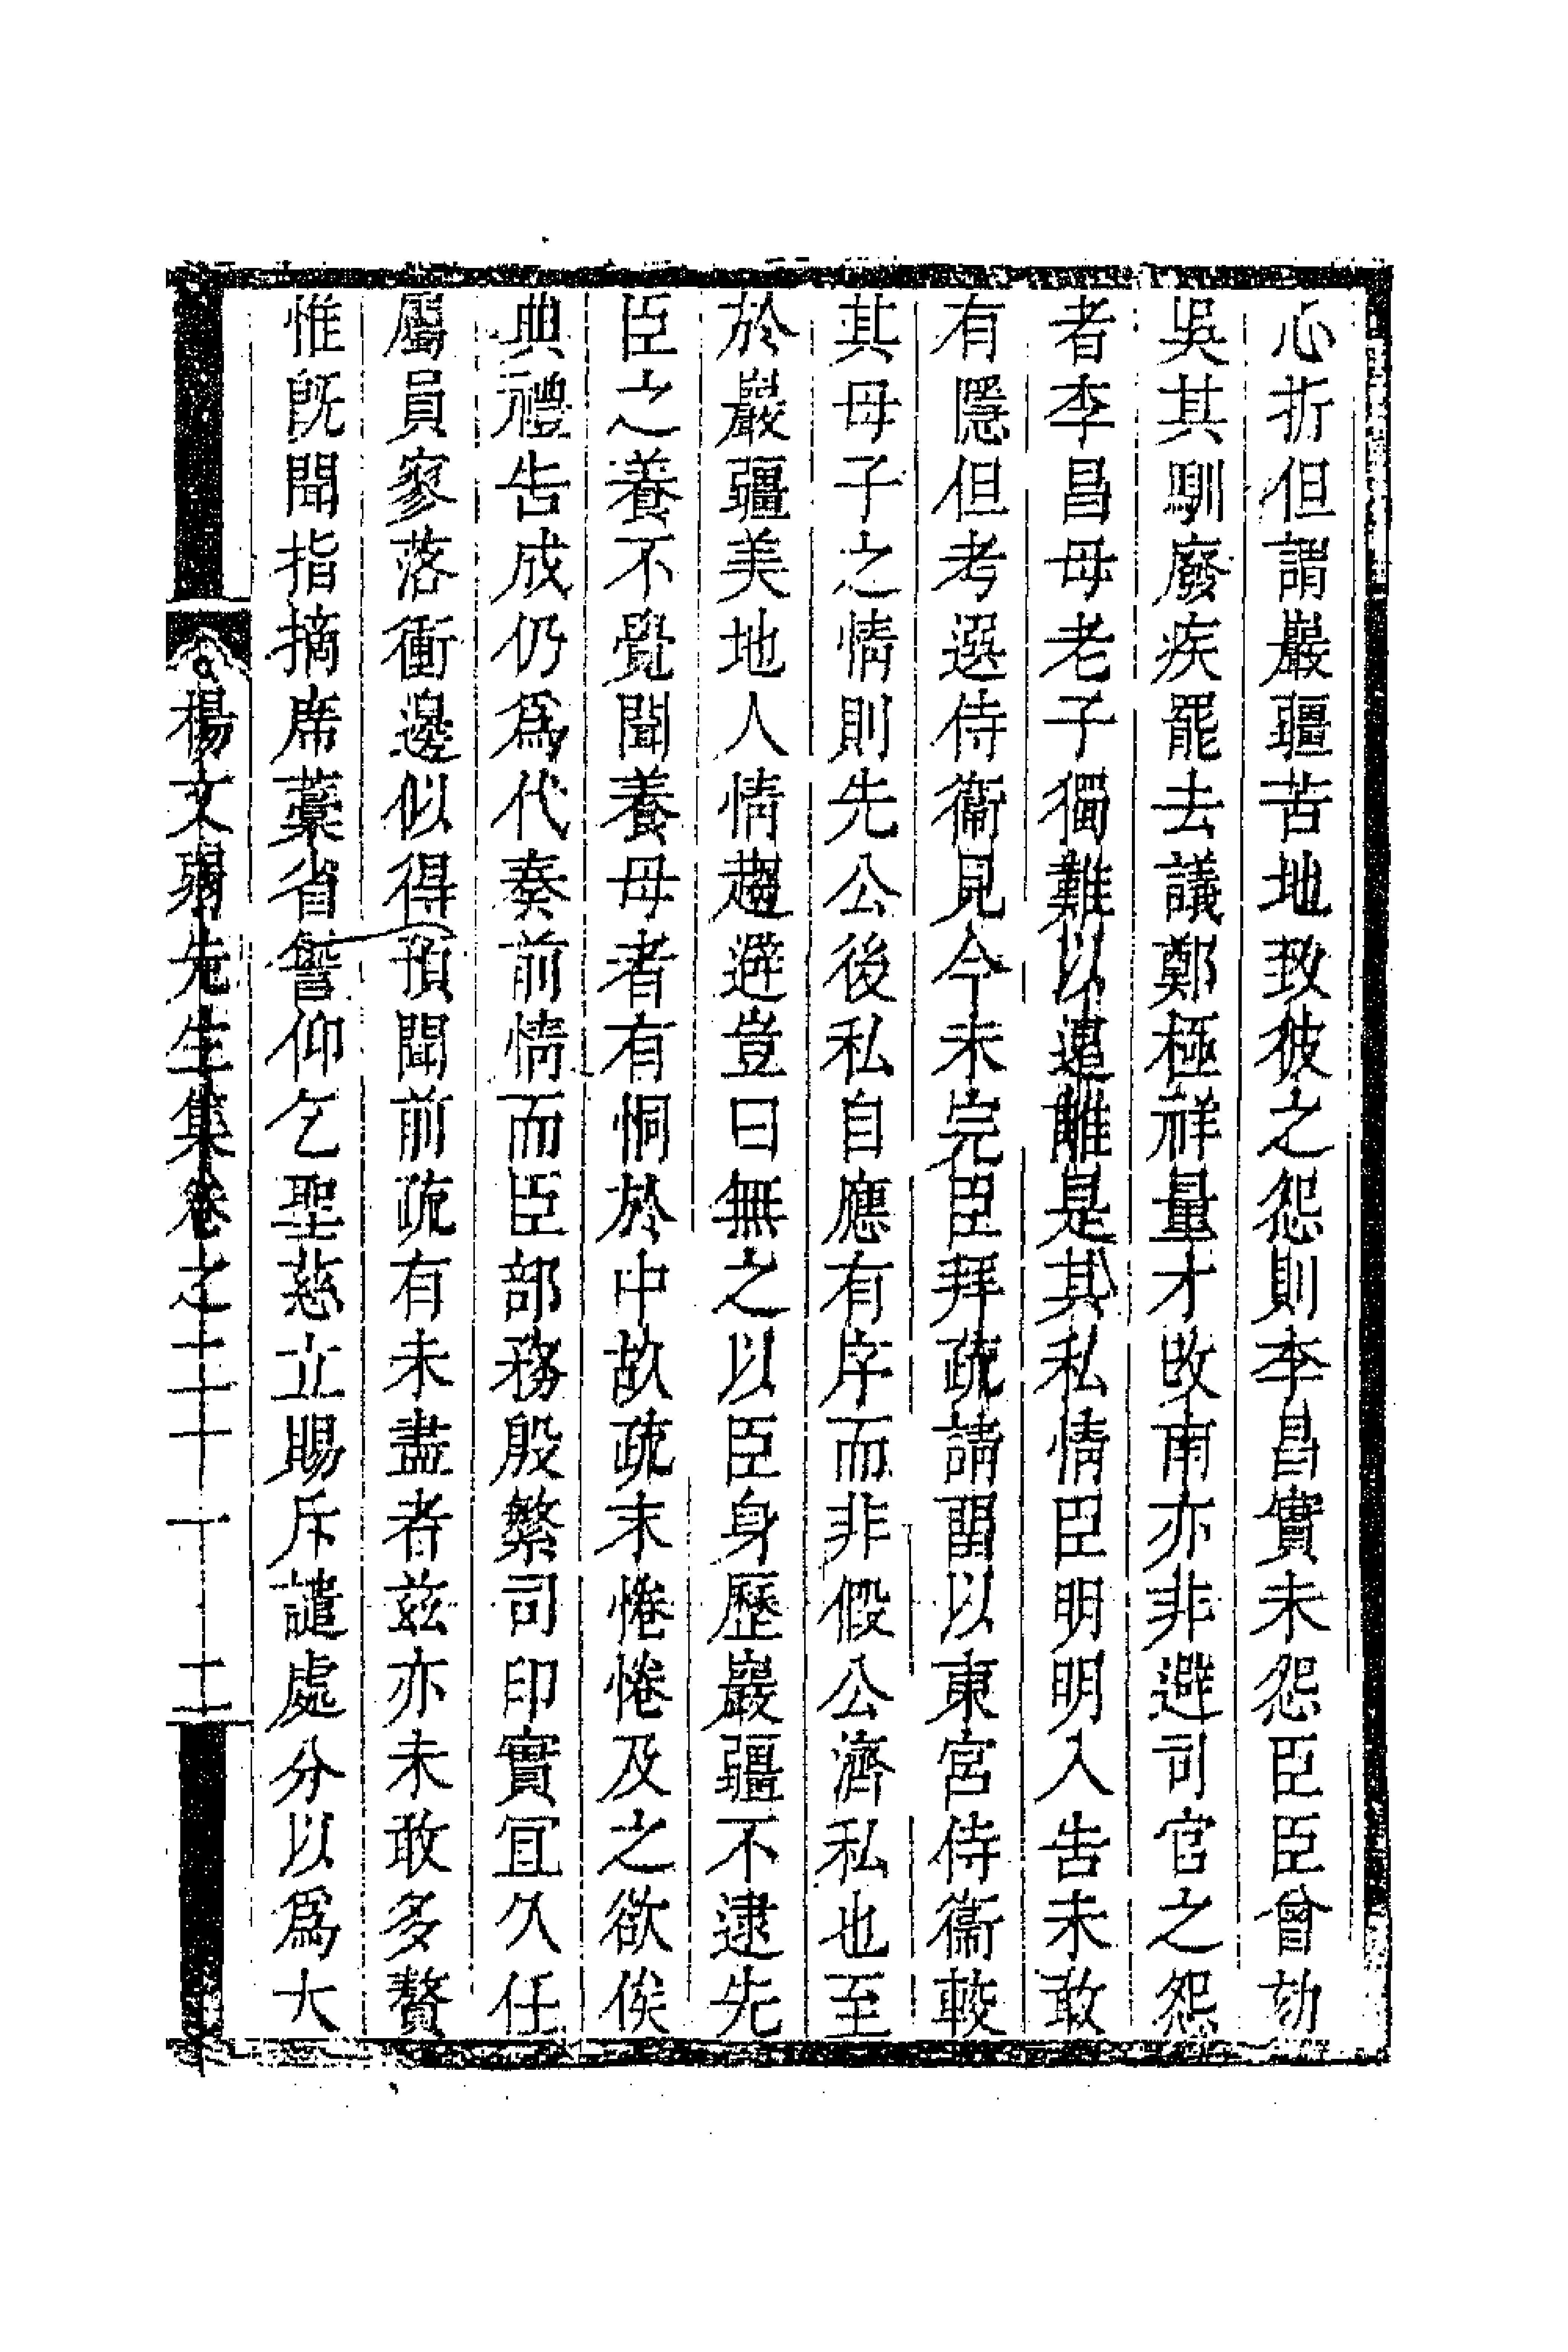 心折但謂巖疆苦地致彼之怨則李昌實未怨臣臣曾劾
吳其馴廢疾罷去議鄭極祥量才改南亦非避司官之怨
者李昌母老子獨難以遠離是其私情臣明明入告未敢
有隱但考選侍衞見今未完臣拜疏請留以東宮侍衞較
其母子之情則先公後私自應有序而非假公濟私也至
於巖疆美地人情趨避豈曰無之以臣身歷巖疆不逮先
臣之養不覺聞養母者有恫於中故疏末惓惓及之欲俟
典禮告成仍爲代奏前情而臣部務殷繁司印實宜久任
屬員寥落衝邊似得預聞前疏有未盡者茲亦未敢多贅
惟旣聞指摘席藁省諐仰乞聖慈立賜斥譴處分以爲大
楊文弱先生集卷之二十 十二